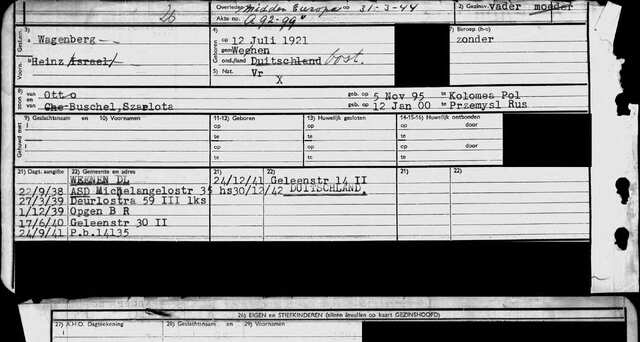 26
Overleden Midden Europa op 31-3-44
Akte no. A 92-99
2) Gezinsv. vader moeder
3)
Wagenberg
Heinz Israel
4)
op 12 Juli 1921
te Weenen
ond./land Duitschland oost.
5) Nat. Vr
X
7) Beroep (b-o)
zonder
8) van Otto geb. op 5 Nov 95 te Kolomea Pol
en van Che Buschel, Szarlota geb. op 12 Jan 00 te Przemysl Rus
9) Geslachtsnaam en 10) Voornamen
11-12) Geboren
13) Huwelijk gesloten
14-15-16) Huwelijk ontbonden
Gehuwd met
1
op
te
op
te
op door
te
1
op
te
op
te
op door
te
21) Dagt. aangifte 22) Gemeente en adres
21) 22)
21) 22)
21) 22)
WEENEN DL 24/12/41 Geleenstr 14 II
22/9/38 ASD Michelangelostr 35 hs 30/12/42 DUITSCHLAND.
27/3/39 Deurlostra 59 III lks
1/12/39 Opgen B R
17/6/40 Geleenstr 30 II
24/9/41 P.b.14135
26) EIGEN en STIEFKINDEREN (alleen invullen op kaart GEZINSHOOFD)
27) A.H.O. Dagteekening
28) Geslachtsnaam en 29) Voornamen